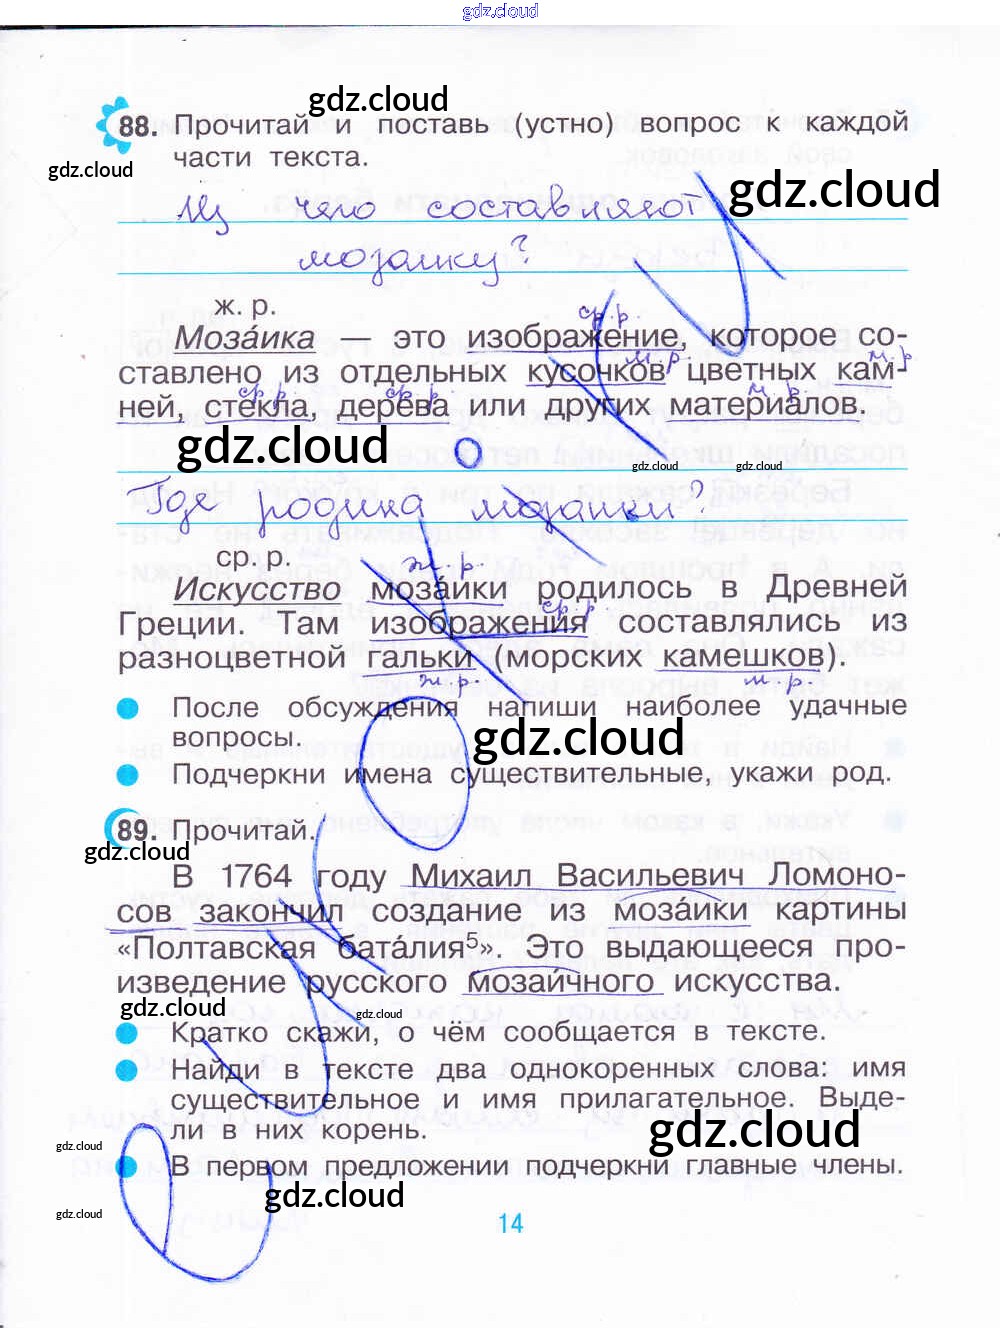 gdz.cloud
gdz.cloud
88. Прочитай и поставь (устно) вопрос к каждой
части текста.
gdz.cloud
gdz.cloud
Из чего составляют
мозаику?
ж. р.
ср. р.
Моза́ика это изображение, которое со-
м. р.
м. р.
ставлено из отдельных кусочков цветных кам-
ср. р.
ср. р.
м. р.
ней, стекла, дерева или других материалов.
gdz.cloud
gdz.cloud
gdz.cloud
Где родина мозаики?
ср. р.
ж. р.
Искусство моза́ики родилось в Древней
ср. р
Греции. Там изображения составлялись из
разноцветной гальки (морских камешков).
ж. р.
м. р.
После обсуждения напиши наиболее удачные
вопросы.
gdz.cloud
Подчеркни имена существительные, укажи род.
89. Прочитай.
gdz.cloud
В 1764 году Михаил Васильевич Ломоно-
сов закончил создание из моза́ики картины
«Полтавская бата́лия⁵». Это выдающееся про-
изведение русского мозаи́чного искусства.
gdz.cloud
gdz.cloud
Кратко скажи, о чём сообщается в тексте.
Найди в тексте два однокоренных слова: имя
существительное и имя прилагательное. Выде-
ли в них корень.
gdz.cloud
gdz.cloud
В первом предложении подчеркни главные члены.
gdz.cloud
gdz.cloud
14